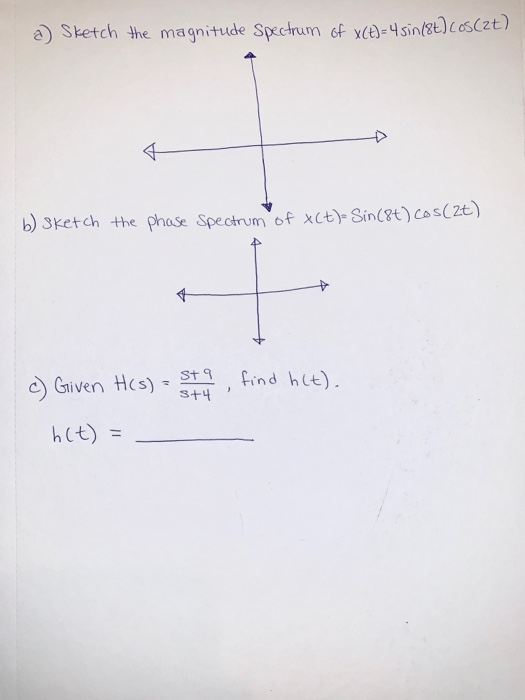 a) Sketch the magnitude Spectrum of x(t)=4sin(8t)cos(2t)
b) Sketch the phase Spectrum of x(t)=Sin(8t)cos(2t)
c) Given H(s) = \frac{s+9}{s+4}, find h(t).
h(t) = ________